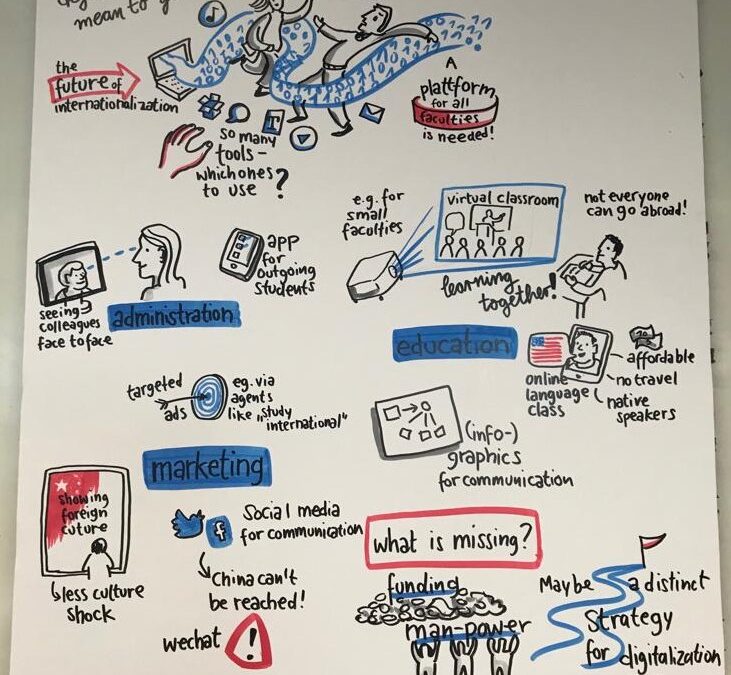 mean to
the
future of
internationalization
A
plattform
for all
faculties
is needed!
so many
tools –
which ones
to use ?
seeing
colleagues
face to face
app
for
outgoing
students
administration
e.g. for
small
faculties
virtual classroom
not everyone
can go abroad!
learning
together!
education
online
language
class
affordable
no travel
native
speakers
targeted
ads
eg. via
agents
like „study
international"
marketing
(info-)
graphics
for communication
showing
foreign
cuture
less culture
shock
f
Social media
for communication
China can't
be reached!
wechat
!
what is missing?
funding
man-power
Maybe a distinct
Strategy
for digitalization